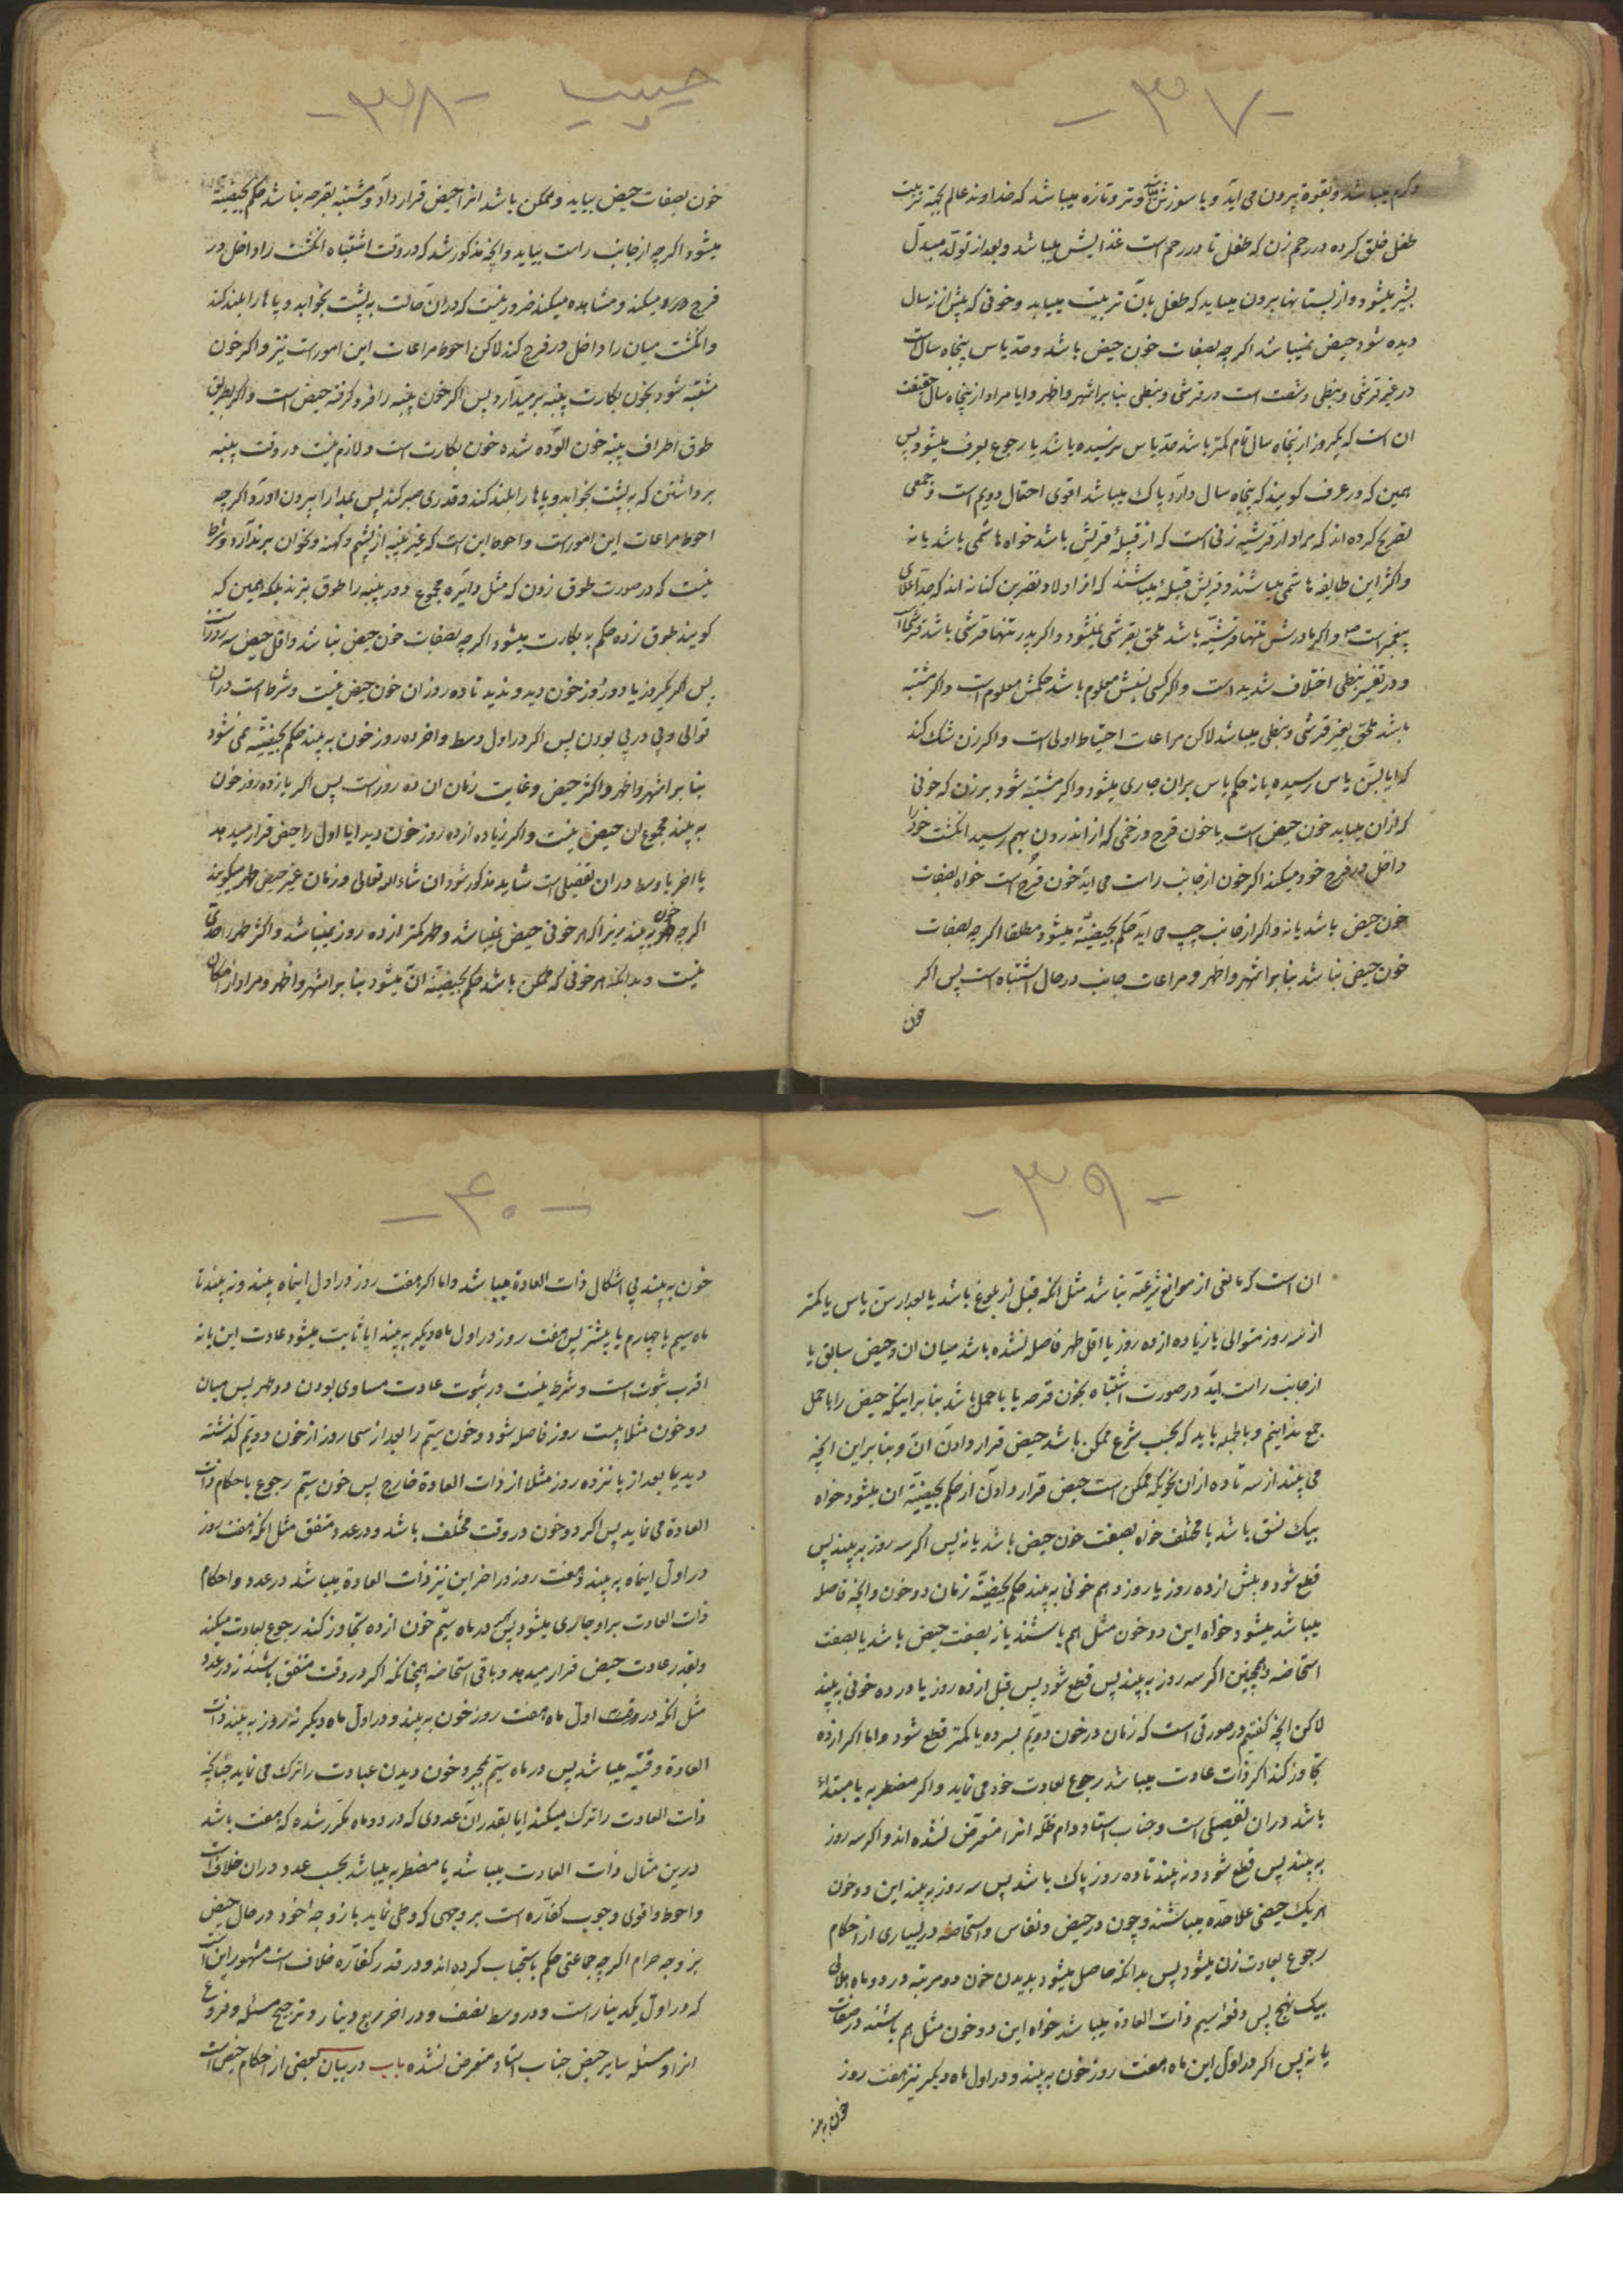 -۳۷-
و گرم میباشد و بقوة بیرون می آید و با سوزش و تر و تازه میباشد که خداوند عالم بجهة تربیت
طفل خلق کرده در رحم زن که طفل تا در رحم است غذایش میباشد و بعد از تولد مبدل
بشیر میشود و از پستانها بیرون میاید که طفل بآن تربیت میابد و خونی که پیش از نه سال
دیده شود حیض نمیباشد اگرچه بصفات خون حیض باشد و حد یاس پنجاه سال است
در غیر قرشی و نبطی و شصت است در قرشی و نبطی بنا بر اشهر و اظهر و ایا مراد از پنجاه سال حقیقت
ان است که یکروز از پنجاه سال تمام کمتر باشد حد یاس نرسیده باشد یا رجوع بعرف میشود پس
همین که در عرف گویند که پنجاه سال دارد پاک میباشد اقوی احتمال دویم است و جمعی
تصریح کرده اند که مراد از قرشیه زنی است که از قبیلۀ قریش باشد خواه هاشمی باشد یا نه
و اکثر این طایفه هاشمی میباشند و قریش قبیلۀ میباشند که از اولاد نضر بن کنانه اند که جد اعلای
پیغمبر است ص و اگر مادرش تنها قرشیه باشد ملحق بقرشی نمیشود و اگر پدر تنها قرشی باشد قرشی است
و در تفسیر نبطی اختلاف شدید است و اگر کسی نسبش معلوم باشد حکمش معلوم است و اگر مشتبه
باشد ملحق بغیر قرشی و نبطی میباشد لاکن مراعات احتیاط اولی است و اگر زن شک کند
که ایا بسن یاس رسیده یا نه حکم یاس بران جاری میشود و اگر مشتبه شود بر زن که خونی
که از ان میاید خون حیض است یا خون قرح و زخمی که از اندرون بهم رسید انگشت خود را
داخل در فرج خود میکند اگر خون از جانب راست می اید خون قرح است خواه بصفات
خون حیض باشد یا نه و اگر از جانب چپ می اید حکم بحیضیة میشود مطلقا اگرچه بصفات
خون حیض نباشد بنا بر اشهر و اظهر و مراعات جانب در حال اشتباه است پس اگر
خون
حبیب -۳۸-
خون بصفات حیض بیاید و ممکن باشد انرا حیض قرار داد و مشتبه بقرحه نباشد حکم بحیضیة
میشود اگرچه از جانب راست بیاید و انچه مذکور شد که در وقت اشتباه انگشت را داخل در
فرج میکند و مشاهده میکند ضرور نیست که دران حالت به پشت بخوابد و پاها را بلند کند
و انگشت میان را داخل در فرج کند لاکن احوط مراعات این امور است نیز و اگر خون
مشتبه شود بخون بکارت پنبه بر میدارد پس اگر خون پنبه را فرو گرفته حیض است و اگر بطریق
طوق اطراف پنبه خون الوده شده خون بکارت است و لازم نیست در وقت پنبه
برداشتن که به پشت بخوابد و پاها را بلند کند و قدری صبر کند پس بمدارا بیرون اورد اگرچه
احوط مراعات این امور است و احوط این است که غیر پنبه از پشم و کهنه و نحو ان برندارد و شرط
نیست که در صورت طوق زدن که مثل دایره مجموع دور پنبه را طوق بزند بلکه همین که
گویند طوق زده حکم به بکارت میشود اگرچه بصفات خون حیض نباشد و اقل حیض سه روز است
پس اگر یکروز یا دو روز خون دید و ندید تا ده روز ان خون حیض نیست و شرط است دران
توالی و پی در پی بودن پس اگر در اول و وسط و اخر ده روز خون به بیند حکم بحیضیه نمی شود
بنا بر اشهر و اظهر و اکثر حیض و غایت زمان ان ده روز است پس اگر یازده روز خون
به بیند مجموع ان حیض نیست و اگر زیاده از ده روز خون دید ایا اول را حیض قرار میدهد
یا اخر یا وسط دران تفصیلی است شاید مذکور شود ان شاء الله تعالی و زمان غیر حیض طهر میگویند
اگرچه خون به بیند زیرا که هر خونی حیض نمیباشد و طهر کمتر از ده روز نمیباشد و اکثر طهر را حدی
نیست و بدانکه هر خونی که ممکن باشد حکم بحیضیة ان میشود بنا بر اشهر و اظهر و مراد از امکان
-۳۹-
ان است که مانعی از موانع شرعیه نباشد مثل انکه قبل از بلوغ باشد یا بعد از سن یاس یا کمتر
از سه روز متوالی یا زیاده از ده روز یا اقل طهر فاصله نشده باشد میان ان و حیض سابق یا
از جانب راست اید در صورت اشتباه بخون قرحه یا با حمل باشد بنا بر اینکه حیض را با حمل
جمع ندانیم و بالجمله باید که بحسب شرع ممکن باشد حیض قرار دادن ان و بنا براین انچه
می بیند از سه تا ده ازان نحویکه ممکن است حیض قرار دادن از حکم بحیضیة ان میشود خواه
بیک نسق باشد یا مختلف خواه بصفت خون حیض باشد یا نه پس اگر سه روز به بیند پس
قطع شود و پیش از ده روز یا روز دهم خونی به بیند حکم بحیضیة زمان دو خون و انچه فاصله
میباشد میشود خواه این دو خون مثل هم باشند یا نه بصفت حیض باشد یا بصفت
استحاضه و همچنین اگر سه روز به بیند پس قطع شود پس قبل از ده روز یا در ده خونی به بیند
لاکن انچه گفتیم در صورتی است که زمان در خون دویم بسر ده یا کمتر قطع شود و اما اگر از ده
تجاوز کند اگر ذات عادت میباشد رجوع بعادت خود می نماید و اگر مضطربه یا مبتدئه
باشد دران تفصیلی است و جناب استاد دام ظله انرا متعرض نشده اند و اگر سه روز
به بیند پس قطع شود و نه بیند تا ده روز پاک باشد پس سه روز به بیند این دو خون
هر یک حیضی علاحده میباشند و چون در حیض و نفاس و استحاضه در بسیاری از احکام
رجوع بعادت زن میشود پس بدانکه حاصل میشود بدیدن خون دو مرتبه در دو ماه هلالی
بیک نهج پس دفعه سیم ذات العادة میباشد خواه این دو خون مثل هم باشند در صفات
یا نه پس اگر در اول این ماه هفت روز خون به بیند و در اول ماه دیگر نیز هفت روز
خون به بیند
-۴۰-
خون به بیند بی اشکال ذات العادة میباشد و اما اگر هفت روز در اول اینماه بیند و نه بیند تا
ماه سیم یا چهارم یا بیشتر پس هفت روز در اول ماه دیگر به بیند ایا ثابت میشود عادت این یا نه
اقرب ثبوت است و شرط نیست در ثبوت عادت مساوی بودن دو طهر پس میان
دو خون مثلا بیست روز فاصله شود و خون سیم را بعد از سی روز از خون دویم گذشته
دید یا بعد از پانزده روز مثلا از ذات العادة خارج پس خون سیم رجوع باحکام ذات
العادة می نماید پس اگر دو خون در وقت مختلف باشد و در عدد متفق مثل انکه هفت روز
در اول اینماه به بیند و هفت روز در اخر این نیز ذات العادة میباشد در عدد و احکام
ذات العادت بر او جاری میشود پس اگر در ماه سیم خون از ده تجاوز کند رجوع بعادت میکند
و بقدر عادت حیض قرار میدهد و باقی استحاضه همچنانکه اگر در وقت متفق باشند نه در عدد
مثل انکه در اول ماه هفت روز خون به بیند و در اول ماه دیگر نه روز به بیند ذات
العادة وقتیه میباشد پس در ماه سیم بمجرد خون دیدن عبادت را ترک می نماید چنانچه
ذات العادت را ترک میکند ایا بقدر ان عددی که در دو ماه مکرر شده که هفت باشد
درین مثال ذات العادت میباشد یا مضطربه میباشد بحسب عدد دران خلاف است
و احوط و اقوی وجوب کفاره است بر وجهی که وطی نماید با زوجه خود در حال حیض
بر وجه حرام اگرچه جماعتی حکم باستحباب کرده اند و در قدر کفاره خلاف است مشهور این است
که در اول یکدینار است و در وسط نصف و در اخر ربع دینار و ترجیح مسئله و فروع
انرا و مسئله سایر حیض جناب استاد متعرض نشده باب در بیان بعضی از احکام حیض است